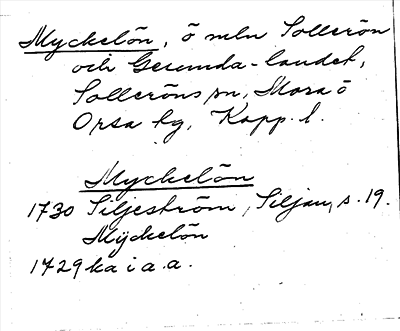 Myckelön, ö mln Sollerön
och Gesunda-landet,
Solleröns sn, Mora o
Orsa tg, Kopp. l.
Myckelön
1730 Siljeström, Siljan, s. 19.
Mÿckelön
1729 ka i a.a.